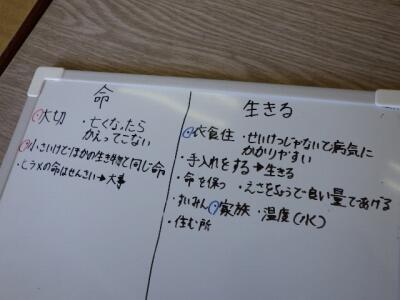 命
大切 ・亡くなったら
かえってこない
小さいけどほかの生き物と同じ命
・ヒラメの命はせんさい→大事
生きる
衣食住 ・せいけつじゃないと病気に
かかりやすい
・手入れをする→生きる
・命を保つ ・えさをふつうで良い量であげる
・すいみん 家族 ・温度(水)
・住む所